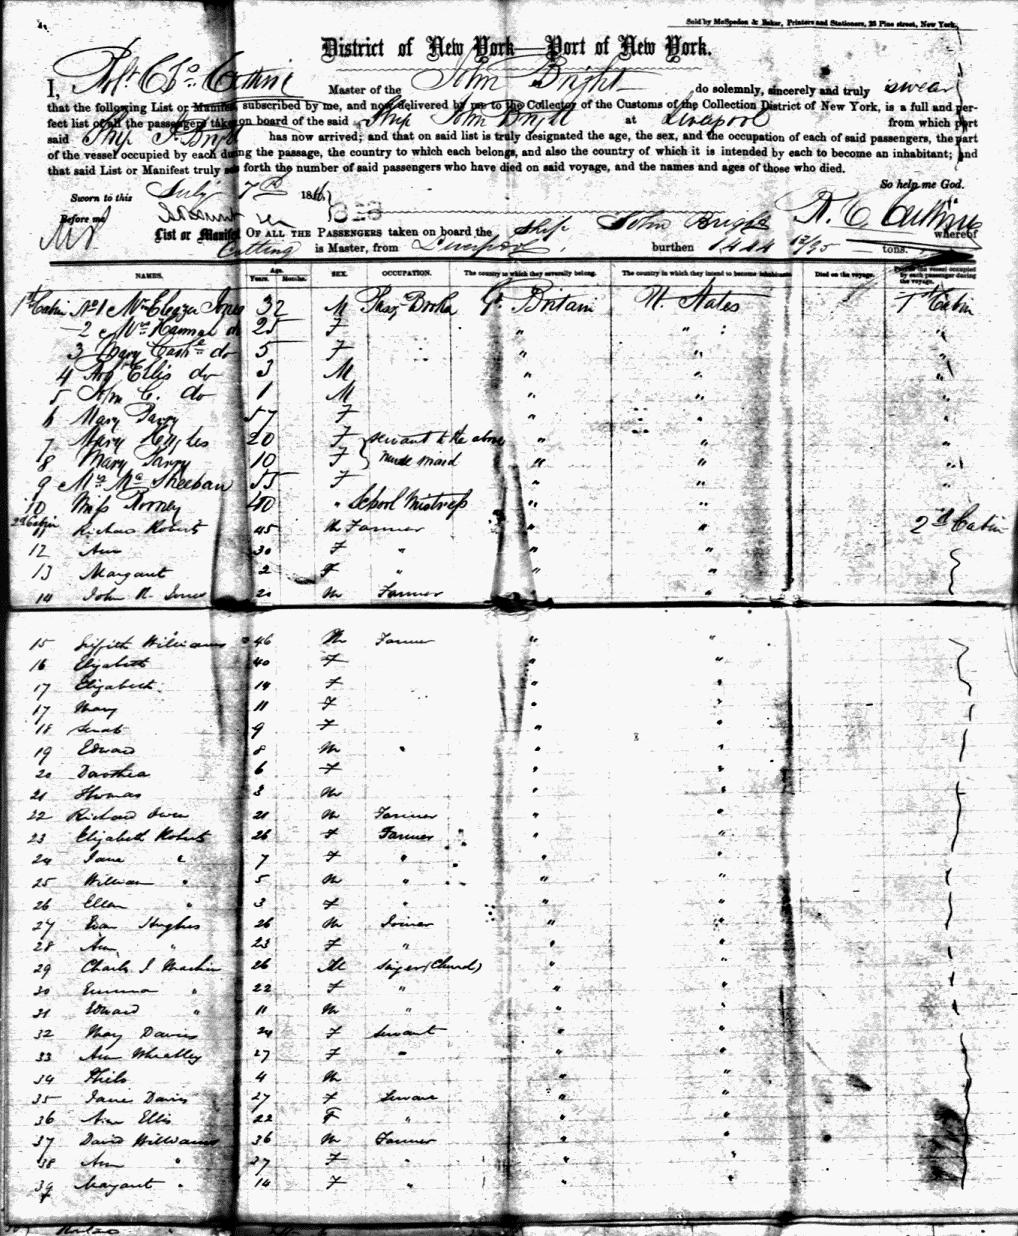 Sold by McSpedon & Baker, Printers and Stationers, 25 Pine street, New York.
District of New York—Port of New York.
I, Master of the John Bright do solemnly, sincerely and truly swear
that the following List or Manifest subscribed by me, and now delivered by me to the Collector of the Customs of the Collection District of New York, is a full and per-
fect list of all the passengers taken on board of the said Ship John Bright at Liverpool from which port
said Ship J. Bright has now arrived; and that on said list is truly designated the age, the sex, and the occupation of each of said passengers, the part
of the vessel occupied by each during the passage, the country to which each belongs, and also the country of which it is intended by each to become an inhabitant; and
that said List or Manifest truly sets forth the number of said passengers who have died on said voyage, and the names and ages of those who died.
So help me God.
Sworn to this July 7th 18
Before me
List or Manifest OF ALL THE PASSENGERS taken on board the Ship John Bright whereof
Cutting is Master, from Liverpool, burthen 1444 12/95 tons.
NAMES. Age. Years. Months. SEX. OCCUPATION. The country to which they severally belong. The country in which they intend to become inhabitants. Died on the voyage. Part of the vessel occupied by each passenger during the voyage.
1st Cabin No 1 Mr Eleazer Jones 32 M Pass. Broker Gt. Britain U. States 1st Cabin
2 Mrs Hannah do 25 F " "
3 Mary Cath do 5 F " " "
4 Ellis do 3 M " " "
5 Wm C. do 1 M " " "
6 Mary Parry 57 F " " "
7 Mary 20 F servant to the above " " "
8 Mary Parry 10 F Nurse maid " " "
9 Mrs Mc Sheehan 55 F " " "
10 Miss Rooney 40 " School Mistress " " "
2d Cabin 11 Richard Roberts 45 M Farmer " " 2nd Cabin
12 Ann 30 F " " "
13 Margaret 2 F " " "
14 John R. Jones 20 M Farmer " "
15 Griffith Williams 46 M Farmer " "
16 Elizabeth 40 F " "
17 Elizabeth 14 F " "
17 Mary 11 F " "
18 9 F " "
19 Edward 8 M " " "
20 Dorothea 6 F " "
21 Thomas 3 M " "
22 Richard Owen 21 M Farmer " "
23 Elizabeth Roberts 26 F Farmer " "
24 Jane " 7 F " " "
25 William " 5 M " " "
26 Ellen " 3 F " " "
27 Evan Hughes 26 M Joiner " "
28 Ann " 23 F " " "
29 Charles J. Machin 26 M Singer (Church) " "
30 Emma " 22 F " " "
31 Edward " 11 M " " "
32 Mary Davies 24 F Servant " "
33 Ann Wheatley 27 F " " "
34 4 M " "
35 Jane Davis 27 F Servant " "
36 Ann Ellis 22 F " " "
37 David Williams 36 M Farmer " "
38 Ann " 27 F " " "
39 Margaret " 14 F " " "